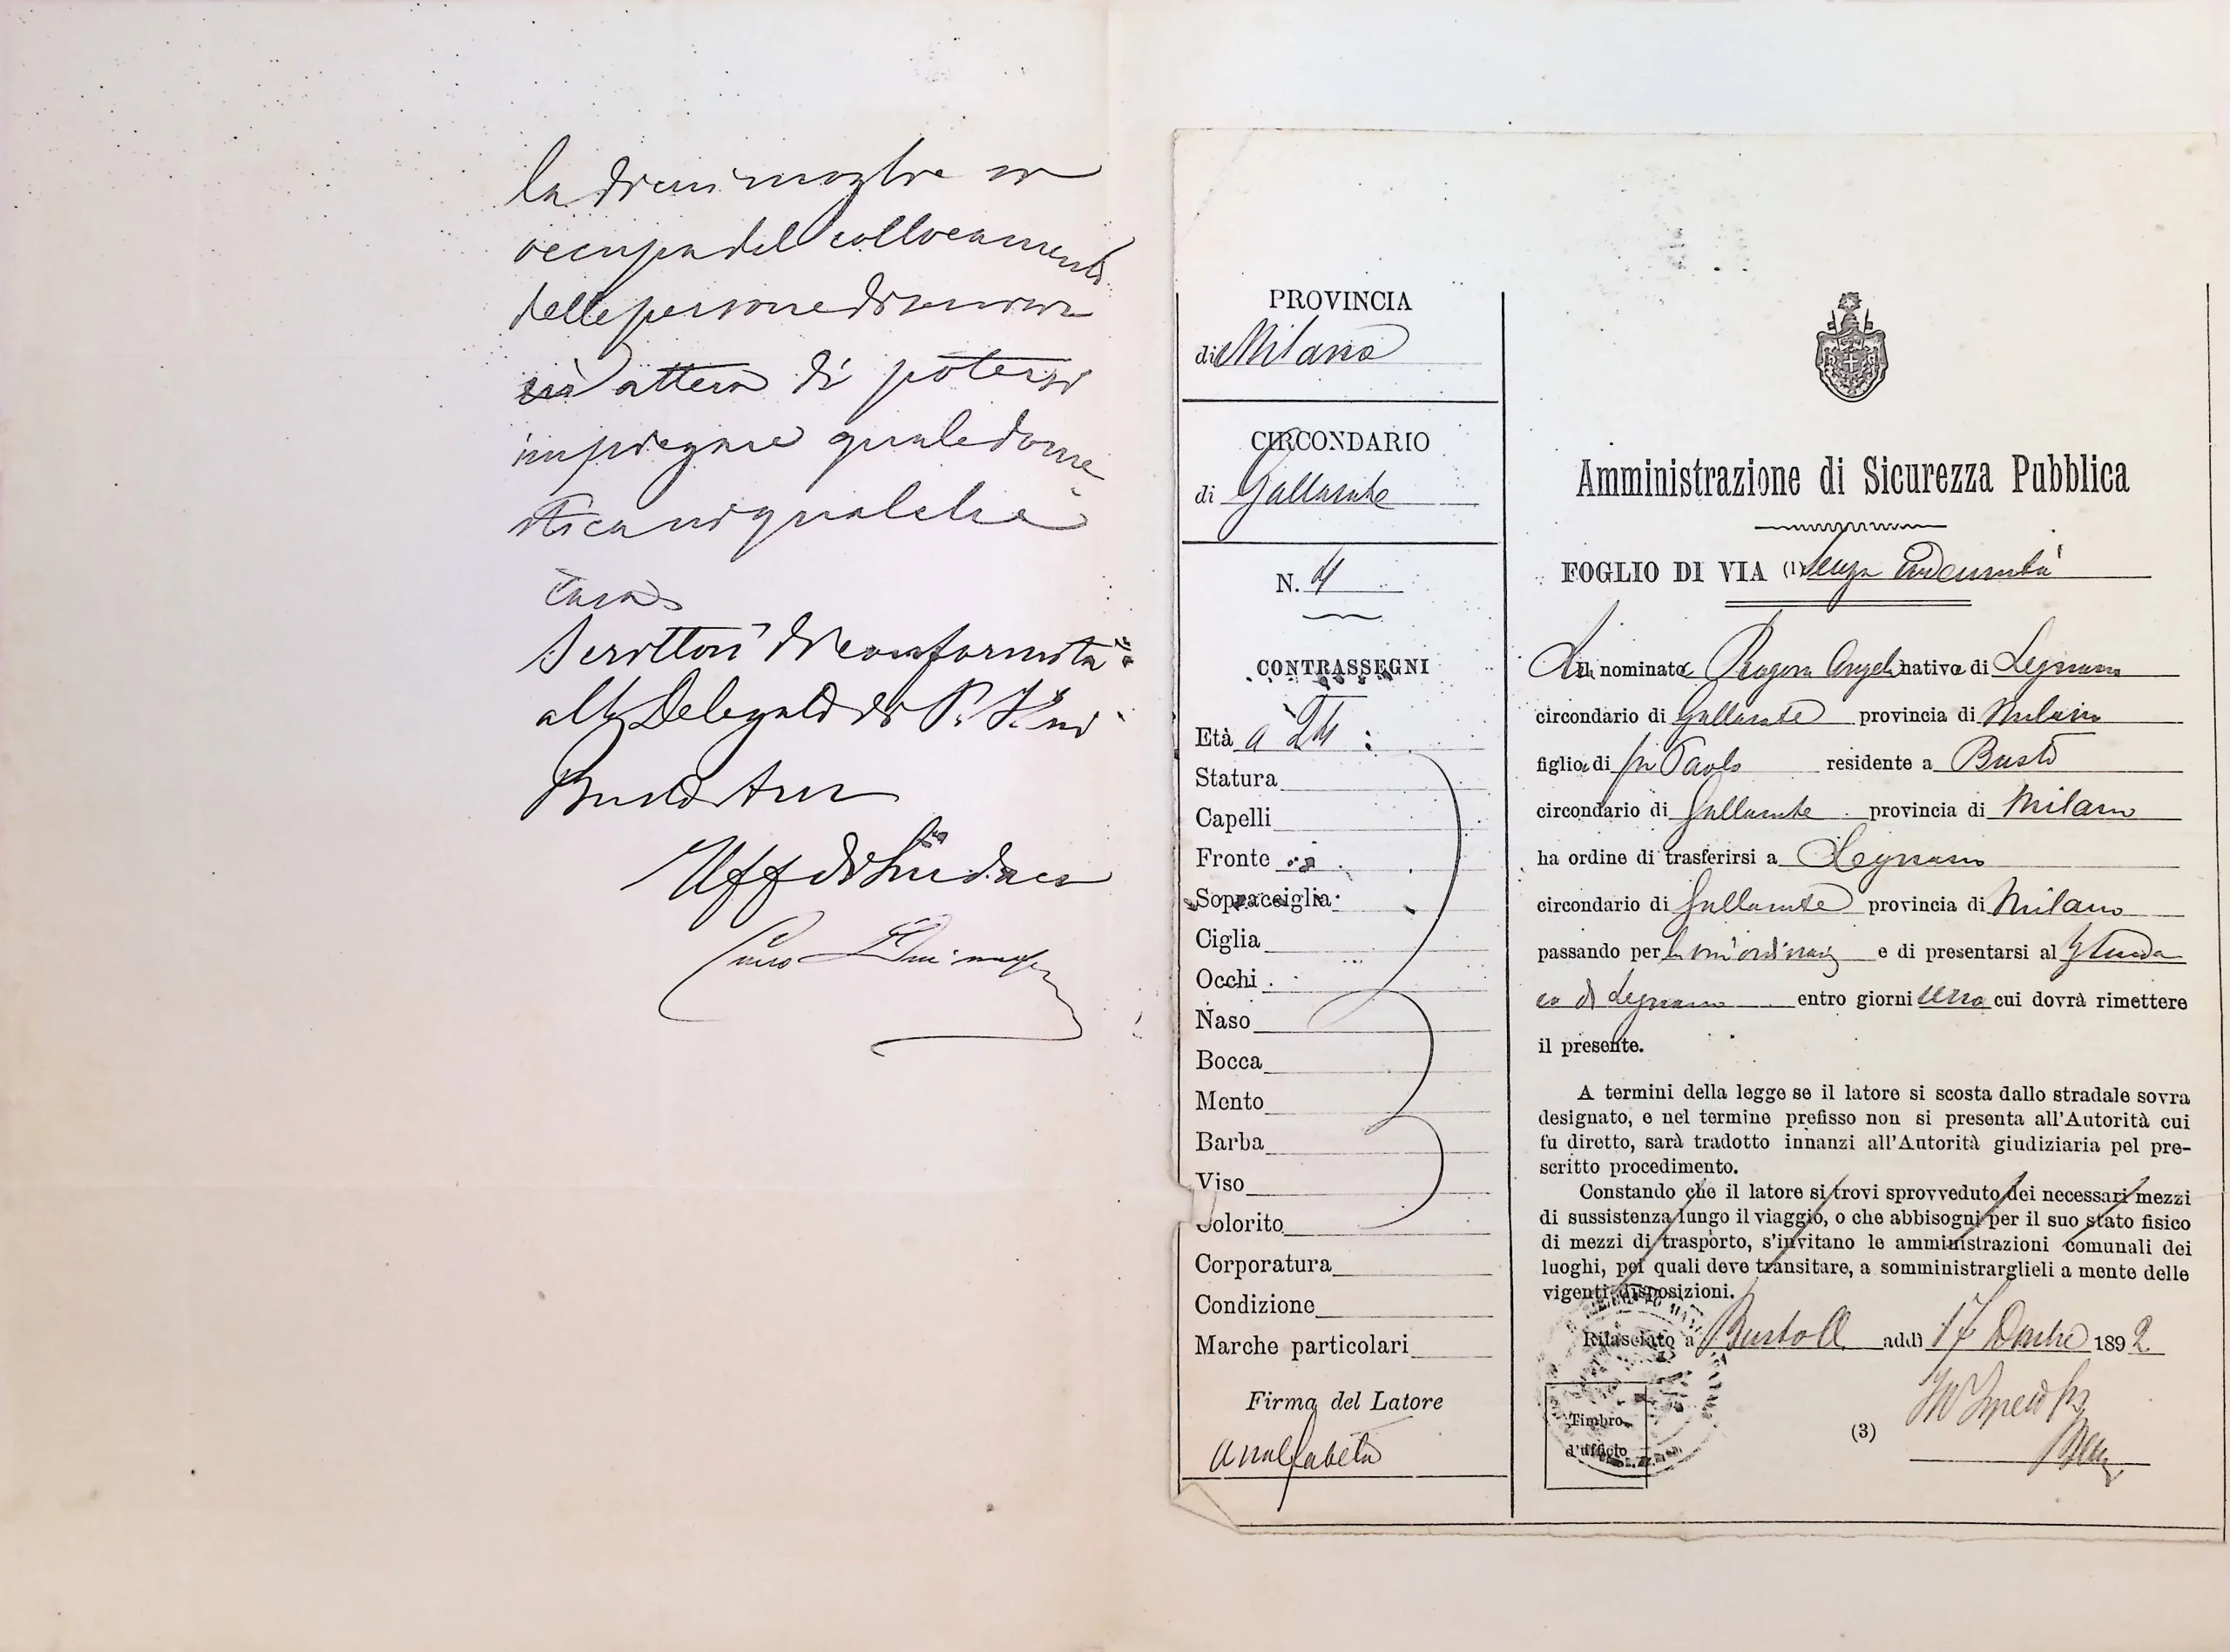 la di cui moglie si
occupa del collocamento
delle persone di servizio
in attesa di potersi
impiegare quale dome
stica in qualche
casa
Scrittosi di conformità
al Delegato di P. S. in
Busto Arsº
Uff di Sindaco
PROVINCIA
di Milano
CIRCONDARIO
di Gallarate
N. 4
CONTRASSEGNI
Età a 24
Statura
Capelli
Fronte
Sopracciglia
Ciglia
Occhi
Naso
Bocca
Mento
Barba
Viso
Colorito
Corporatura
Condizione
Marche particolari
Firma del Latore
Analfabeta
Amministrazione di Sicurezza Pubblica
FOGLIO DI VIA (1) senza indennità
La nominata Ragona Angela nativa di Legnano
circondario di Gallarate provincia di Milano
figlia di fu Paolo residente a Busto
circondario di Gallarate provincia di Milano
ha ordine di trasferirsi a Legnano
circondario di Gallarate provincia di Milano
passando per la via ordinaria e di presentarsi al Sinda
co di Legnano entro giorni uno cui dovrà rimettere
il presente.
A termini della legge se il latore si scosta dallo stradale sovra
designato, e nel termine prefisso non si presenta all'Autorità cui
fu diretto, sarà tradotto innanzi all'Autorità giudiziaria pel pre-
scritto procedimento.
Constando che il latore si trovi sprovveduto dei necessari mezzi
di sussistenza lungo il viaggio, o che abbisogni per il suo stato fisico
di mezzi di trasporto, s'invitano le amministrazioni comunali dei
luoghi, pei quali deve transitare, a somministrarglieli a mente delle
vigenti disposizioni.
Rilasciato a Busto A. addì 17 Dmbre 1892
Timbro
d'ufficio
(3)